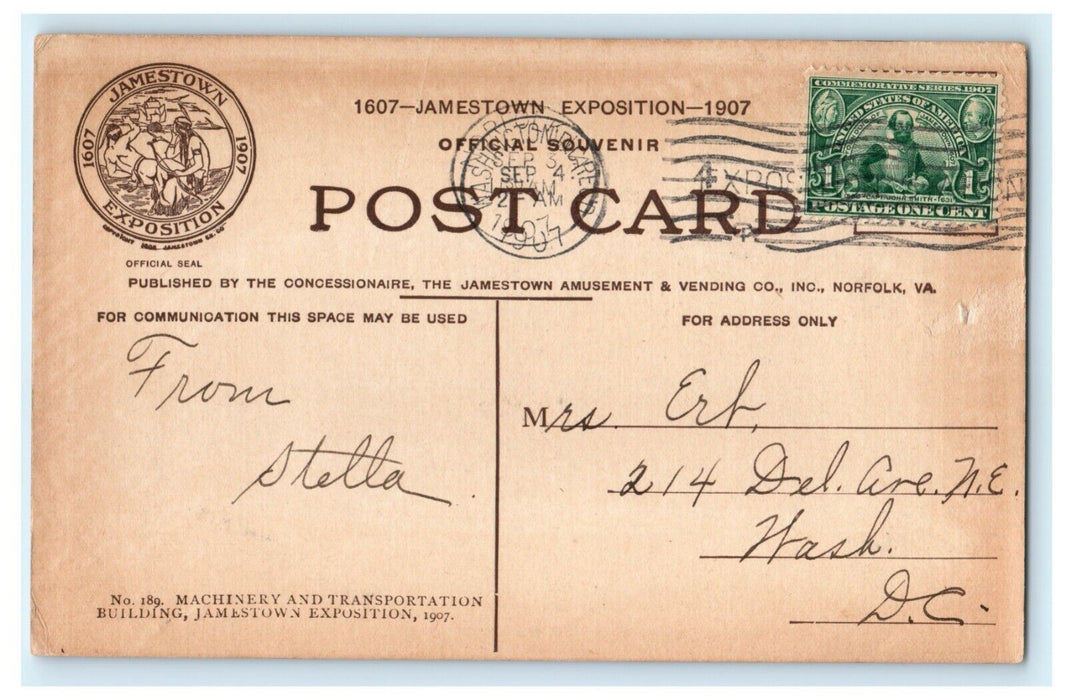 JAMESTOWN
1607 1907
EXPOSITION
COPYRIGHT 1906 JAMESTOWN EX. CO.
OFFICIAL SEAL
1607—JAMESTOWN EXPOSITION—1907
OFFICIAL SOUVENIR
POST CARD
WASHINGTON, D.C.
SEP 3
SEP 4
2 – AM
1907
1907
EXPOS
COMMEMORATIVE SERIES 1907
UNITED STATES OF AMERICA
CAPT. JOHN SMITH-1631
1 1
POSTAGE ONE CENT
PUBLISHED BY THE CONCESSIONAIRE, THE JAMESTOWN AMUSEMENT & VENDING CO., INC., NORFOLK, VA.
FOR COMMUNICATION THIS SPACE MAY BE USED
From
Stella.
No. 189. MACHINERY AND TRANSPORTATION
BUILDING, JAMESTOWN EXPOSITION, 1907.
FOR ADDRESS ONLY
Mrs. Erb,
214 Del. Ave. N.E.
Wash.
D.C.